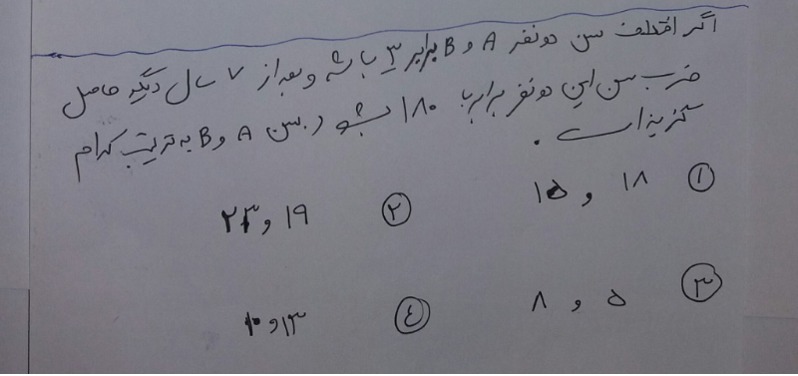 اگر اختلاف سن دو نفر A و B برابر ۳ باشه و بعد از ۷ سال دیگه حاصل
ضرب سن این دو نفر برابر با ۱۸۰ بشو د. سن A و B به ترتیب کدام
گزینه است.
۱ ۱۸ و ۱۵ ۲ ۱۹ و ۲۲
۳ ۵ و ۸ ٤ ۱۳ و ۱۰